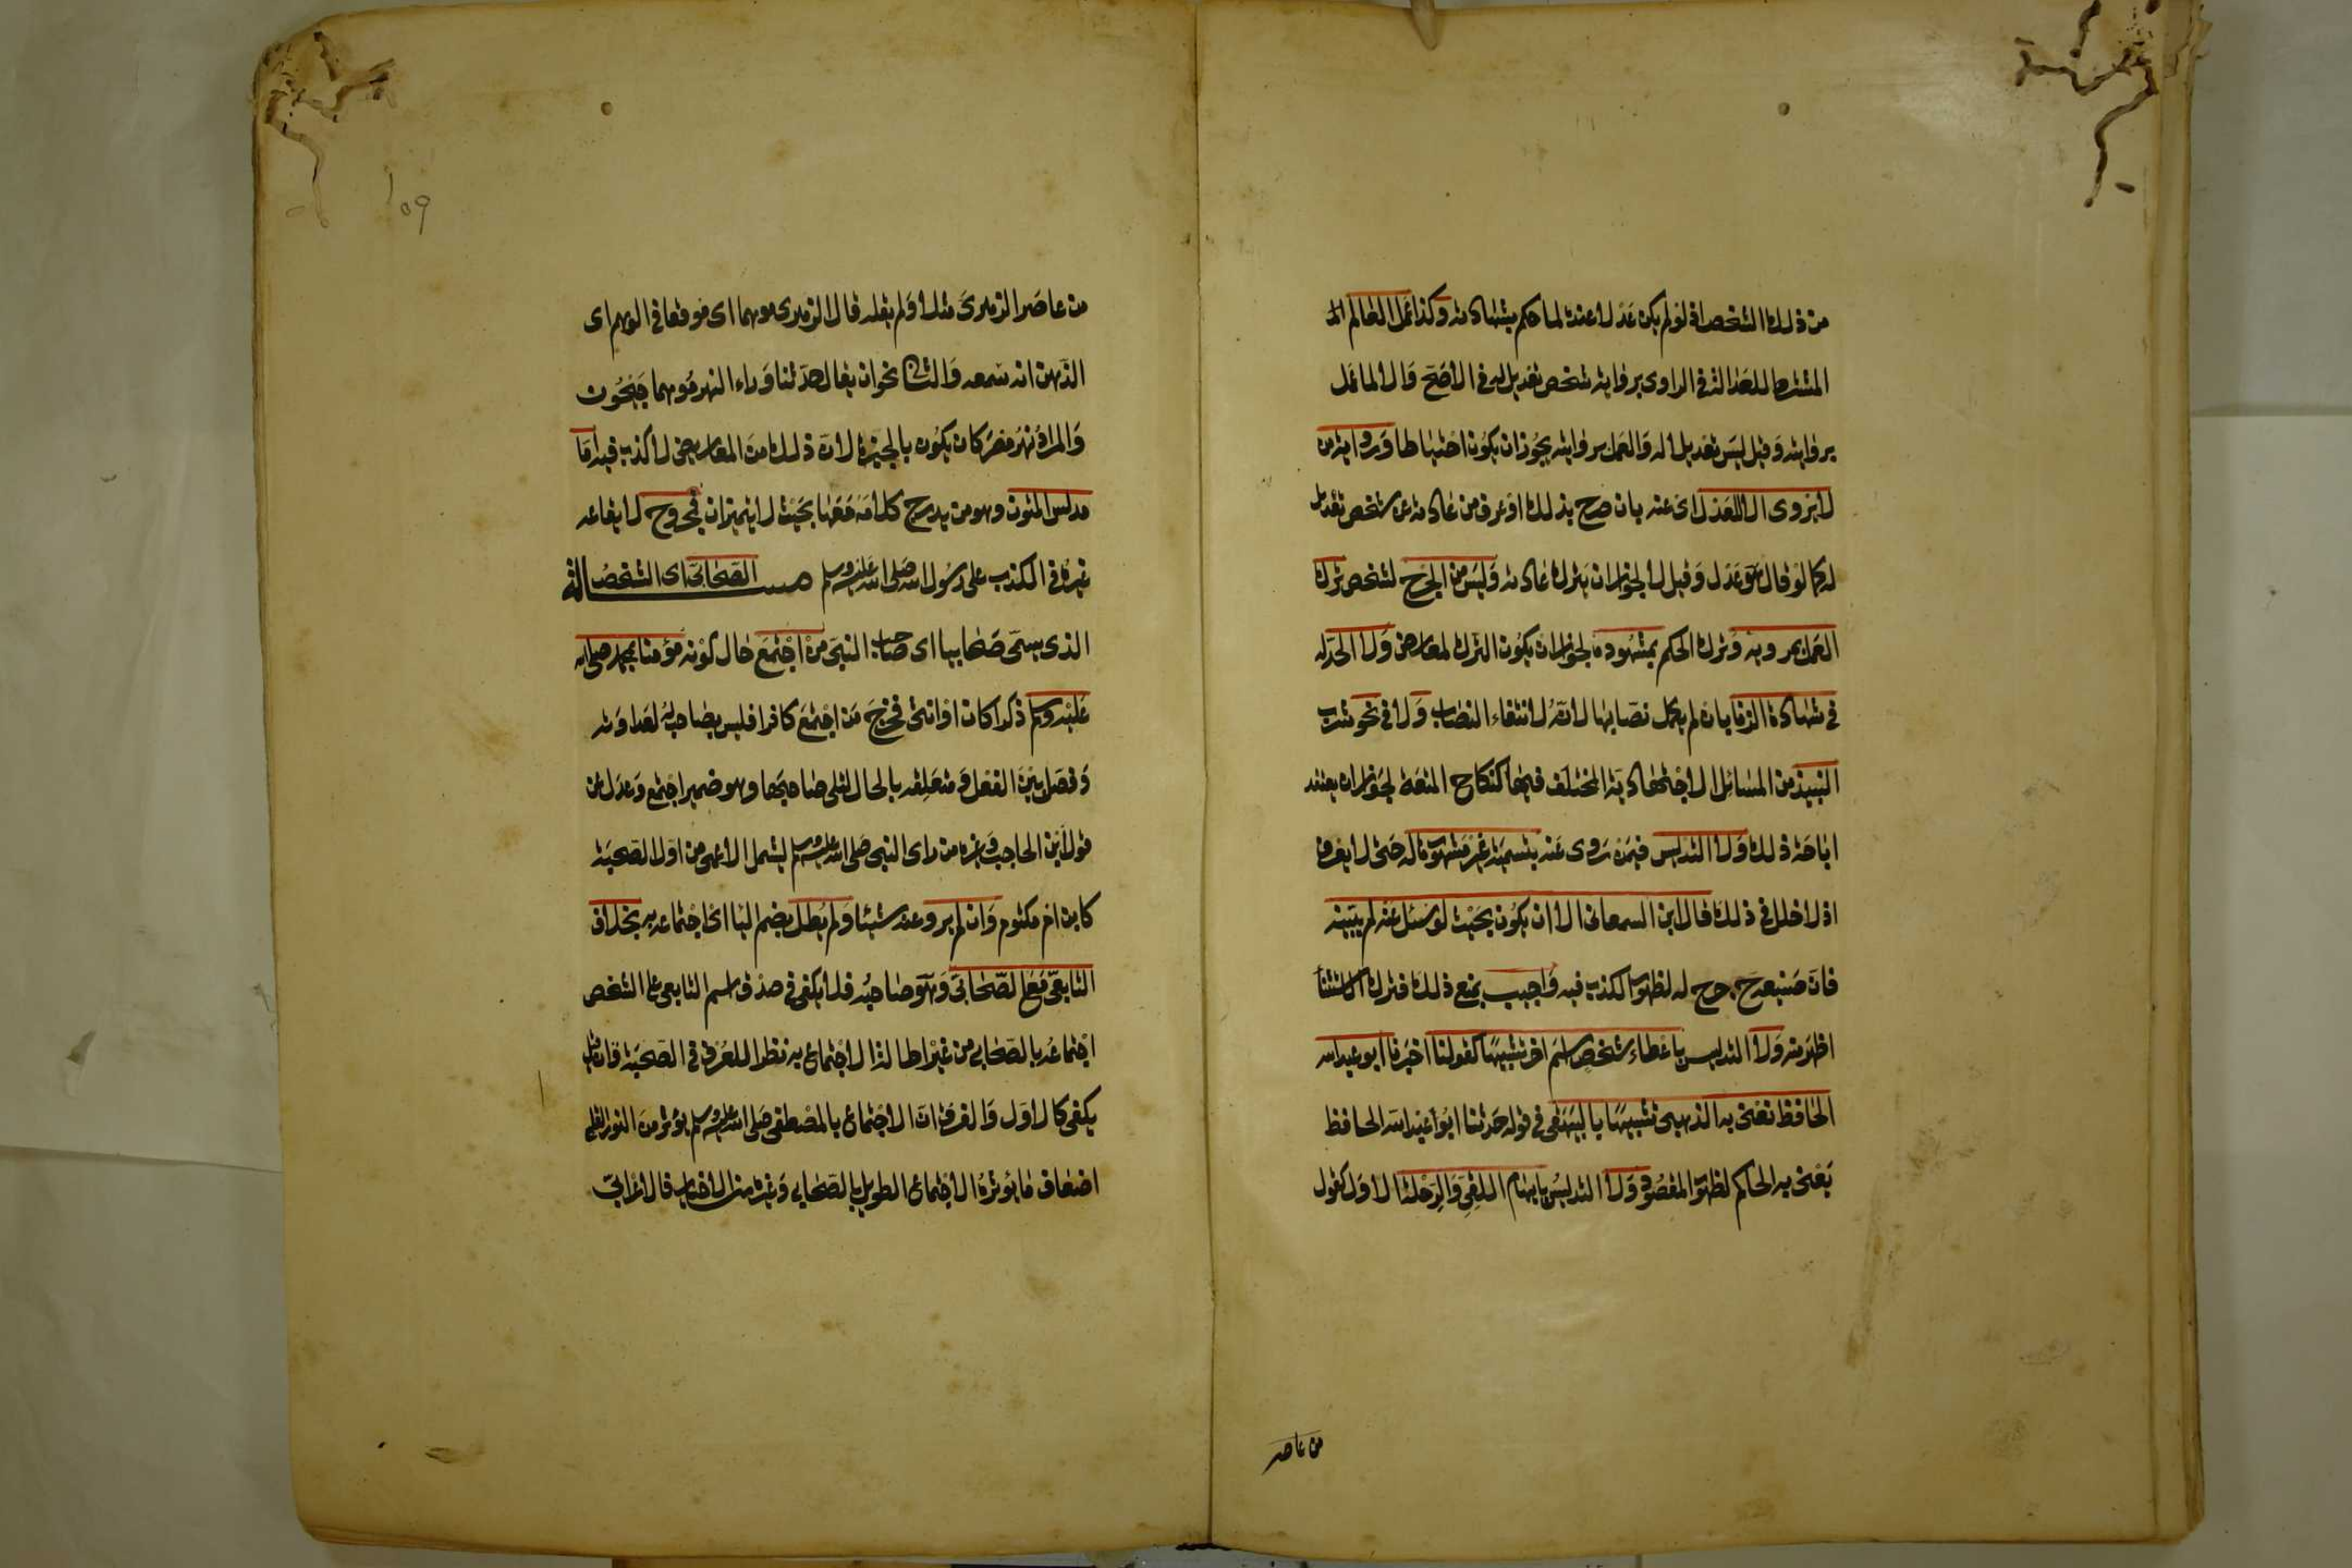 من ذلك الشخص اذ لو لم يكن عدلا عنده لما حكم بشهادته وكذا عمل العالم
المشترط للعدالة في الراوي برواية شخص تعديل له في الاصح والا لما عمل
بروايته وقيل ليس تعديلا له والعمل بروايته يجوز ان يكون احتياطا ورواية من
لا يروي الا للعدل اي عنه بان صرح بذلك او عرف من عادته عن شخص تعديل
له كما لو قال هو عدل وقيل لا لجواز ان يترك عادته وليس من الجرح لشخص ترك
العمل بمرويه وترك الحكم بمشهوده لجواز ان يكون الترك لمعارض ولا الحد له
في شهادة الزنا بان لم يكمل نصابها لانه لانتفاء النصاب ولا في نحو شرب
النبيذ من المسائل الاجتهادية المختلف فيها كنكاح المتعة لجواز ان يعتقد
اباحة ذلك ولا التدليس فيمن روى عنه بتسمية غير مشهورة له حتى لا يعرف
اذ لا خلل في ذلك قال ابن السمعاني الا ان يكون بحيث لو سئل عنه لم يبينه
فان صنيعه ح جرح له لظهور الكذب فيه واجيب بمنع ذلك فترك الاستثنا
اظهر منه ولا التدليس باعطاء شخص اسم اخر تشبيها كقولنا اخبرنا ابو عبد الله
الحافظ نعني به الذهبي تشبيها بالبيهقي في قوله حدثنا ابو عبد الله الحافظ
يعني به الحاكم لظهور المقصود ولا التدليس بايهام اللقي والرحلة الاول كقول
من عاصر
١٥٩
من عاصر الزهري مثلا ولم يلقه قال الزهري موهما اي موقعا في الوهم اي
الذهن انه سمعه والثاني نحو ان يقال حدثنا وراء النهر موهما جيحون
والمراد نهر مصر كان يكون بالجيزة لان ذلك من المعاريض لا كذب فيه اما
مدلس المتون وهو من يدرج كلامه معها بحيث لا يتميزان فمجروح لايقاعه
غيره في الكذب على رسول الله صلى الله عليه وسلم مسـألة الصحابي اي الشخص
الذي يسمى صحابيا اي صاحب النبي من اجتمع حال كونه مؤمنا بمحمد صلى الله
عليه وسلم ذكرا كان او انثى فخرج من اجتمع كافرا فليس بصاحب له لعداوته
وفصل بين الفعل ومتعلقه بالحال لتلي صاحبها وهو ضمير اجتمع وعدل عن
قول ابن الحاجب وغيره من راى النبي صلى الله عليه وسلم ليشمل الاعمى من اول الصحبة
كابن ام مكتوم وان لم يرو عنه شيئا ولم يطل بضم اليا اي اجتماعه به بخلاف
التابعي مع الصحابي وهو صاحبه فلا يكفي في صدق اسم التابعي على الشخص
اجتماعه بالصحابي من غير اطالة الاجتماع به نظرا للعرف في الصحبة وقيل
يكفي كالاول والفرق ان الاجتماع بالمصطفى صلى الله عليه وسلم يؤثر من النور القلبي
اضعاف ما يؤثره الاجتماع الطويل بالصحابي وغيره من الاخيار فالاعرابي